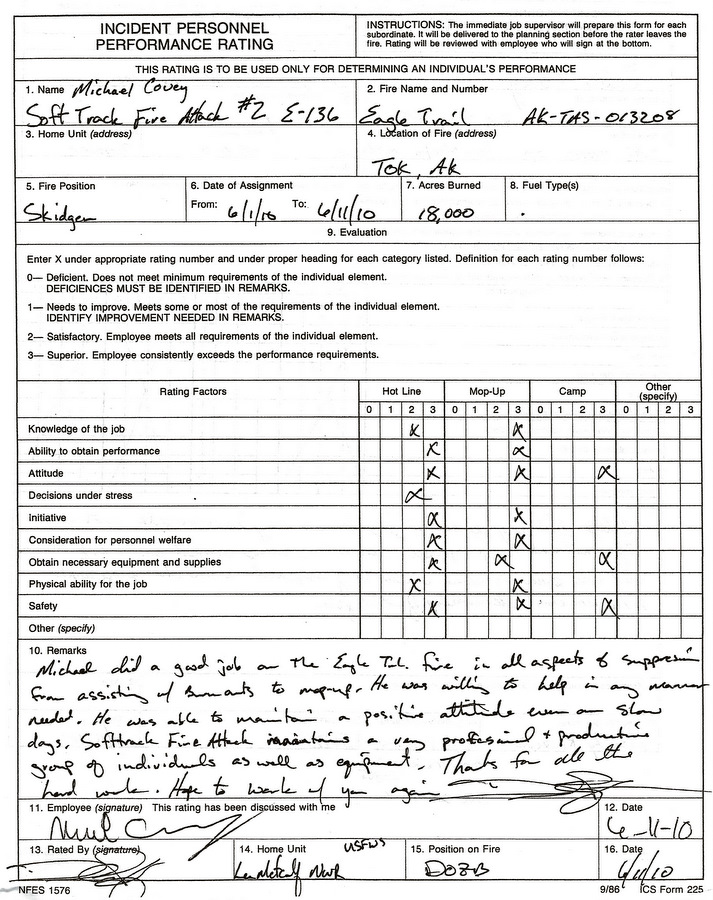 INCIDENT PERSONNEL
PERFORMANCE RATING
INSTRUCTIONS: The immediate job supervisor will prepare this form for each
subordinate. It will be delivered to the planning section before the rater leaves the
fire. Rating will be reviewed with employee who will sign at the bottom.
THIS RATING IS TO BE USED ONLY FOR DETERMINING AN INDIVIDUAL'S PERFORMANCE
1. Name Michael Covey
Soft Track Fire Attack #2 E-136
2. Fire Name and Number
Eagle Trail AK-TAS-013208
3. Home Unit (address)
4. Location of Fire (address)
Tok, AK
5. Fire Position
Skidgen
6. Date of Assignment
From: 6/1/10 To: 6/11/10
7. Acres Burned
18,000
8. Fuel Type(s)
9. Evaluation
Enter X under appropriate rating number and under proper heading for each category listed. Definition for each rating number follows:
0— Deficient. Does not meet minimum requirements of the individual element.
DEFICIENCES MUST BE IDENTIFIED IN REMARKS.
1— Needs to improve. Meets some or most of the requirements of the individual element.
IDENTIFY IMPROVEMENT NEEDED IN REMARKS.
2— Satisfactory. Employee meets all requirements of the individual element.
3— Superior. Employee consistently exceeds the performance requirements.
Rating Factors Hot Line Mop-Up Camp Other
(specify)
0 1 2 3 0 1 2 3 0 1 2 3 0 1 2 3
Knowledge of the job X X
Ability to obtain performance X X
Attitude X X X
Decisions under stress X
Initiative X X
Consideration for personnel welfare X X
Obtain necessary equipment and supplies X X X
Physical ability for the job X X
Safety X X X
Other (specify)
10. Remarks
Michael did a good job on the Eagle Trl. fire in all aspects of suppresion
from assisting w/ Burnouts to mopup. He was willing to help in any manner
needed. He was able to maintain a positive attitude even on slow
days. Softtrack Fire Attack maintains a very profesional + productive
group of individuals as well as equipment. Thanks for all the
hard work. Hope to work w/ you again
11. Employee (signature) This rating has been discussed with me
12. Date
6-11-10
13. Rated By (signature)
14. Home Unit USFWS
15. Position on Fire
DOZB
16. Date
6/11/10
NFES 1576
9/86 ICS Form 225